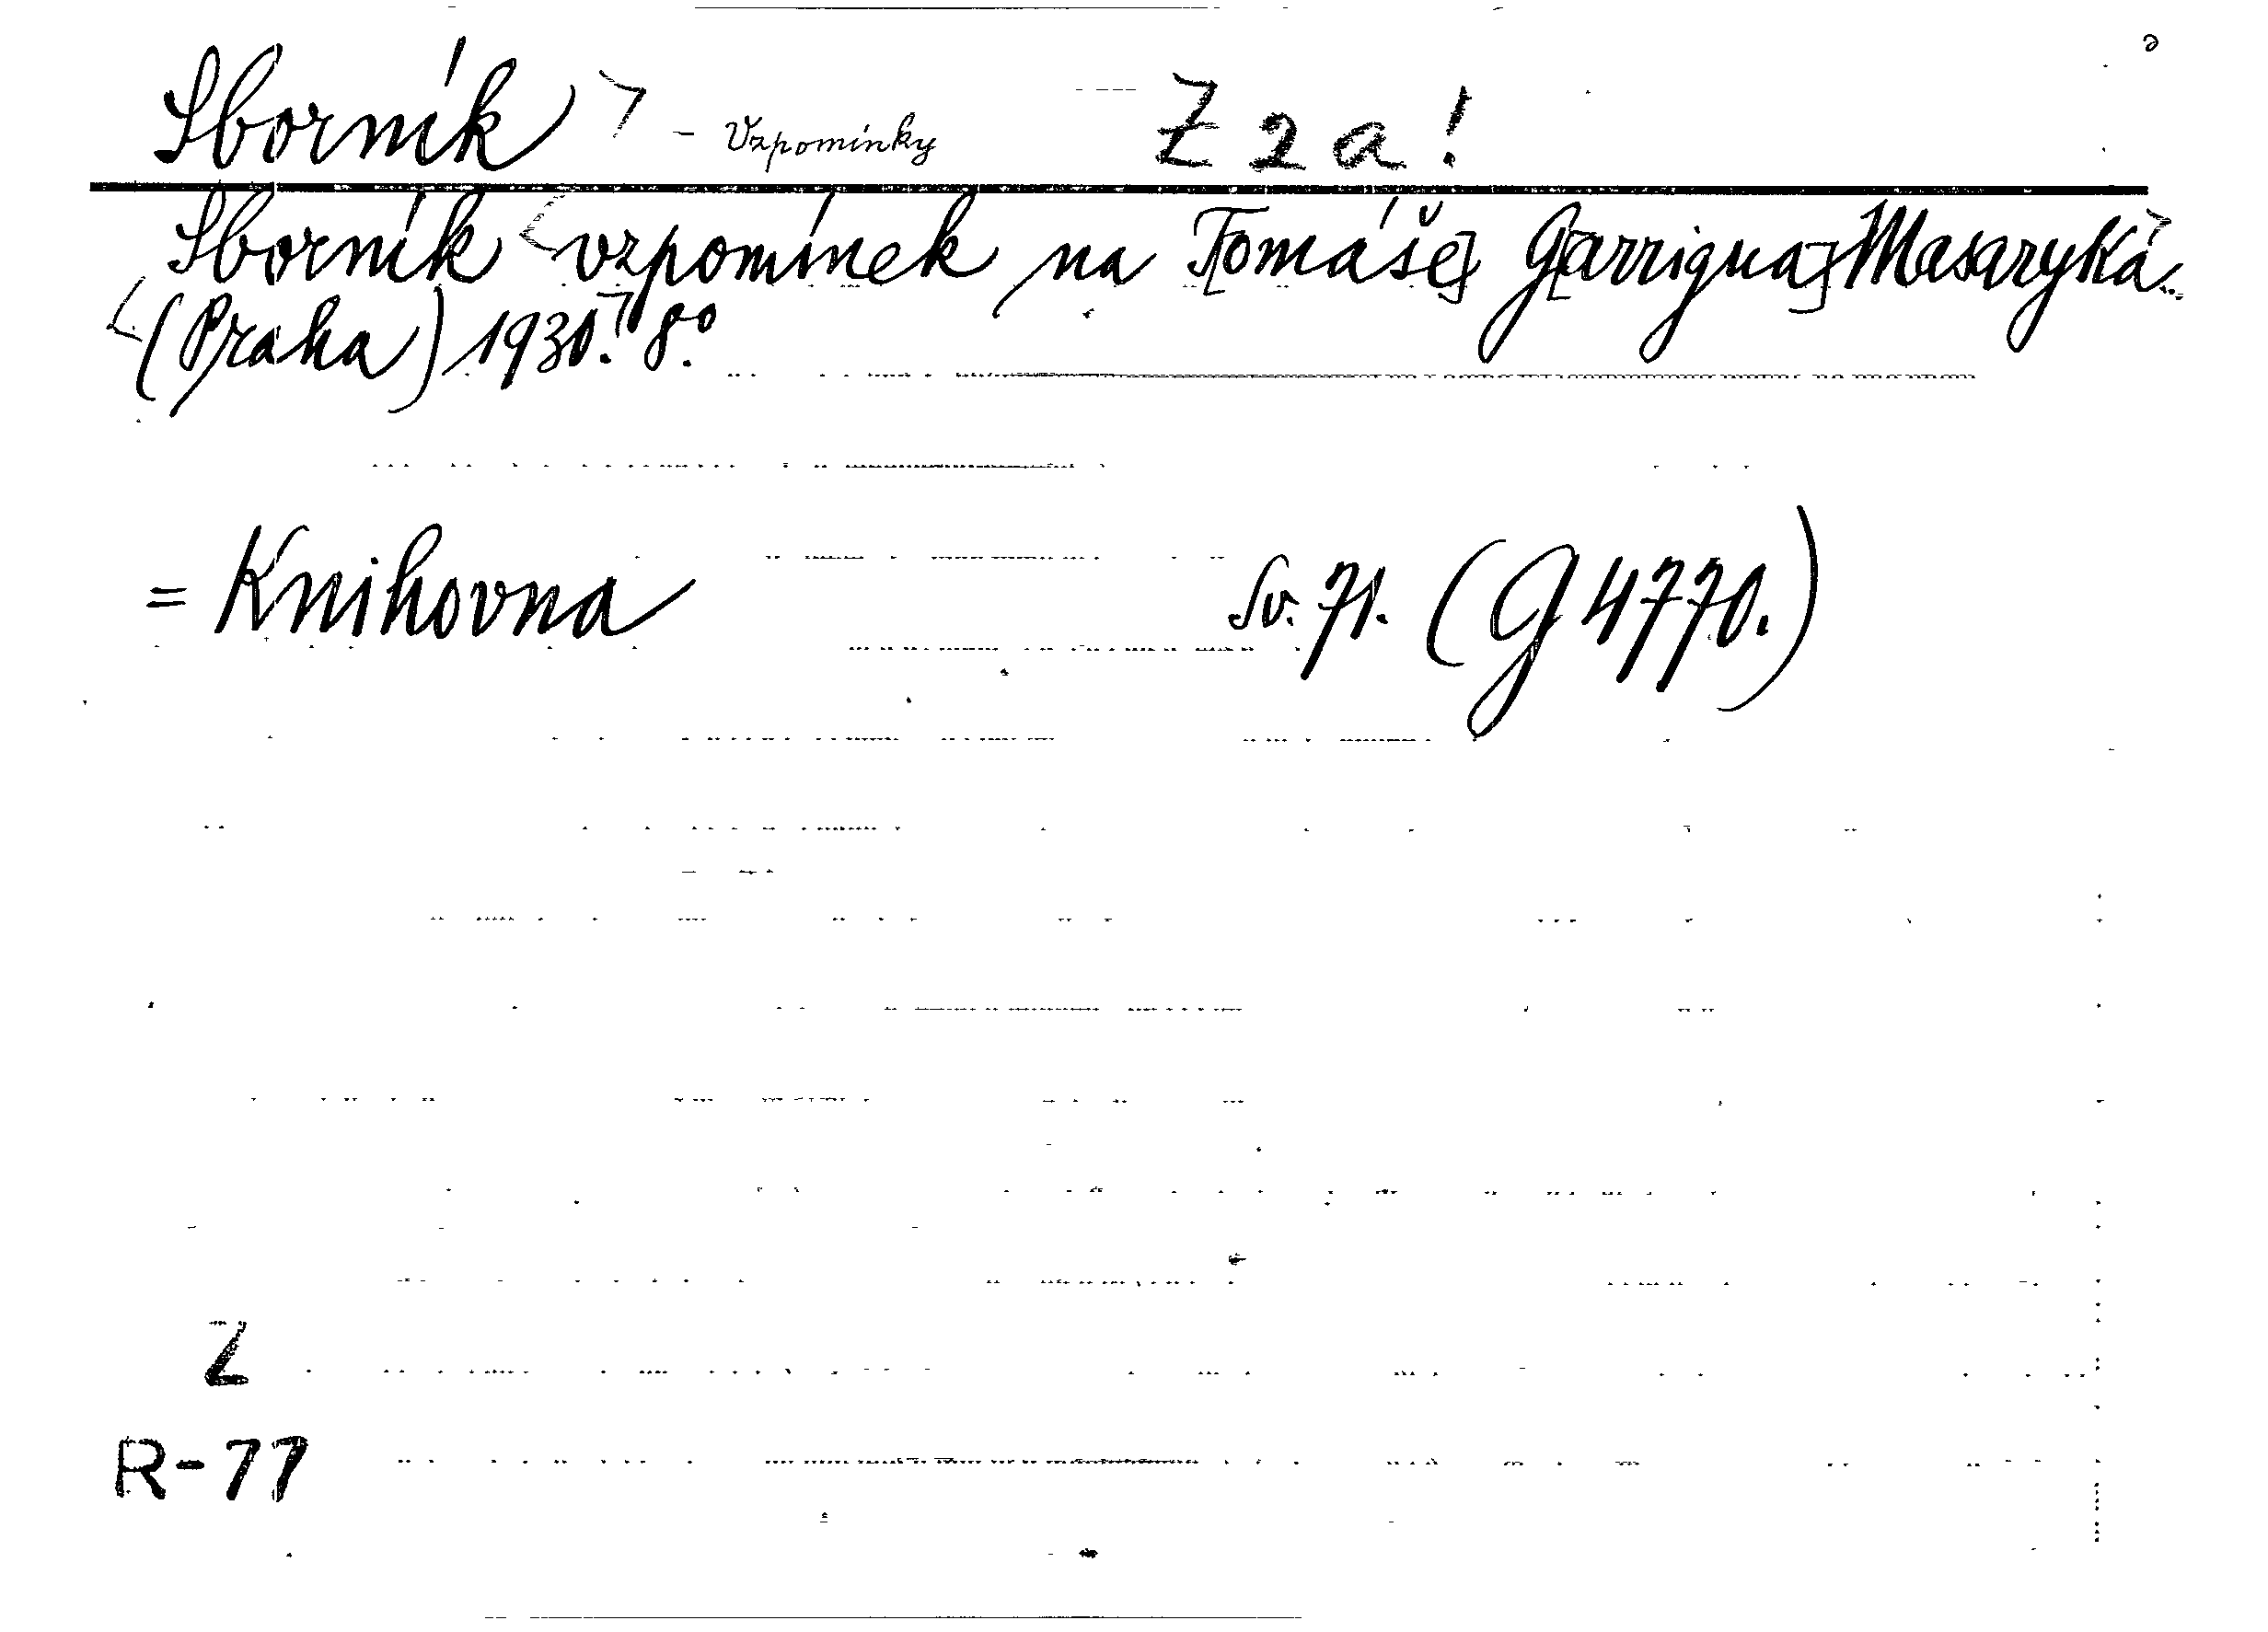 Sborník - Vzpomínky Z 2 a!
Sborník vzpomínek na T[omáše] G[arrigua] Masaryka.
(Praha) 1930. 8.°
= Knihovna Sv. 71. (G 4770.)
Z
R-77